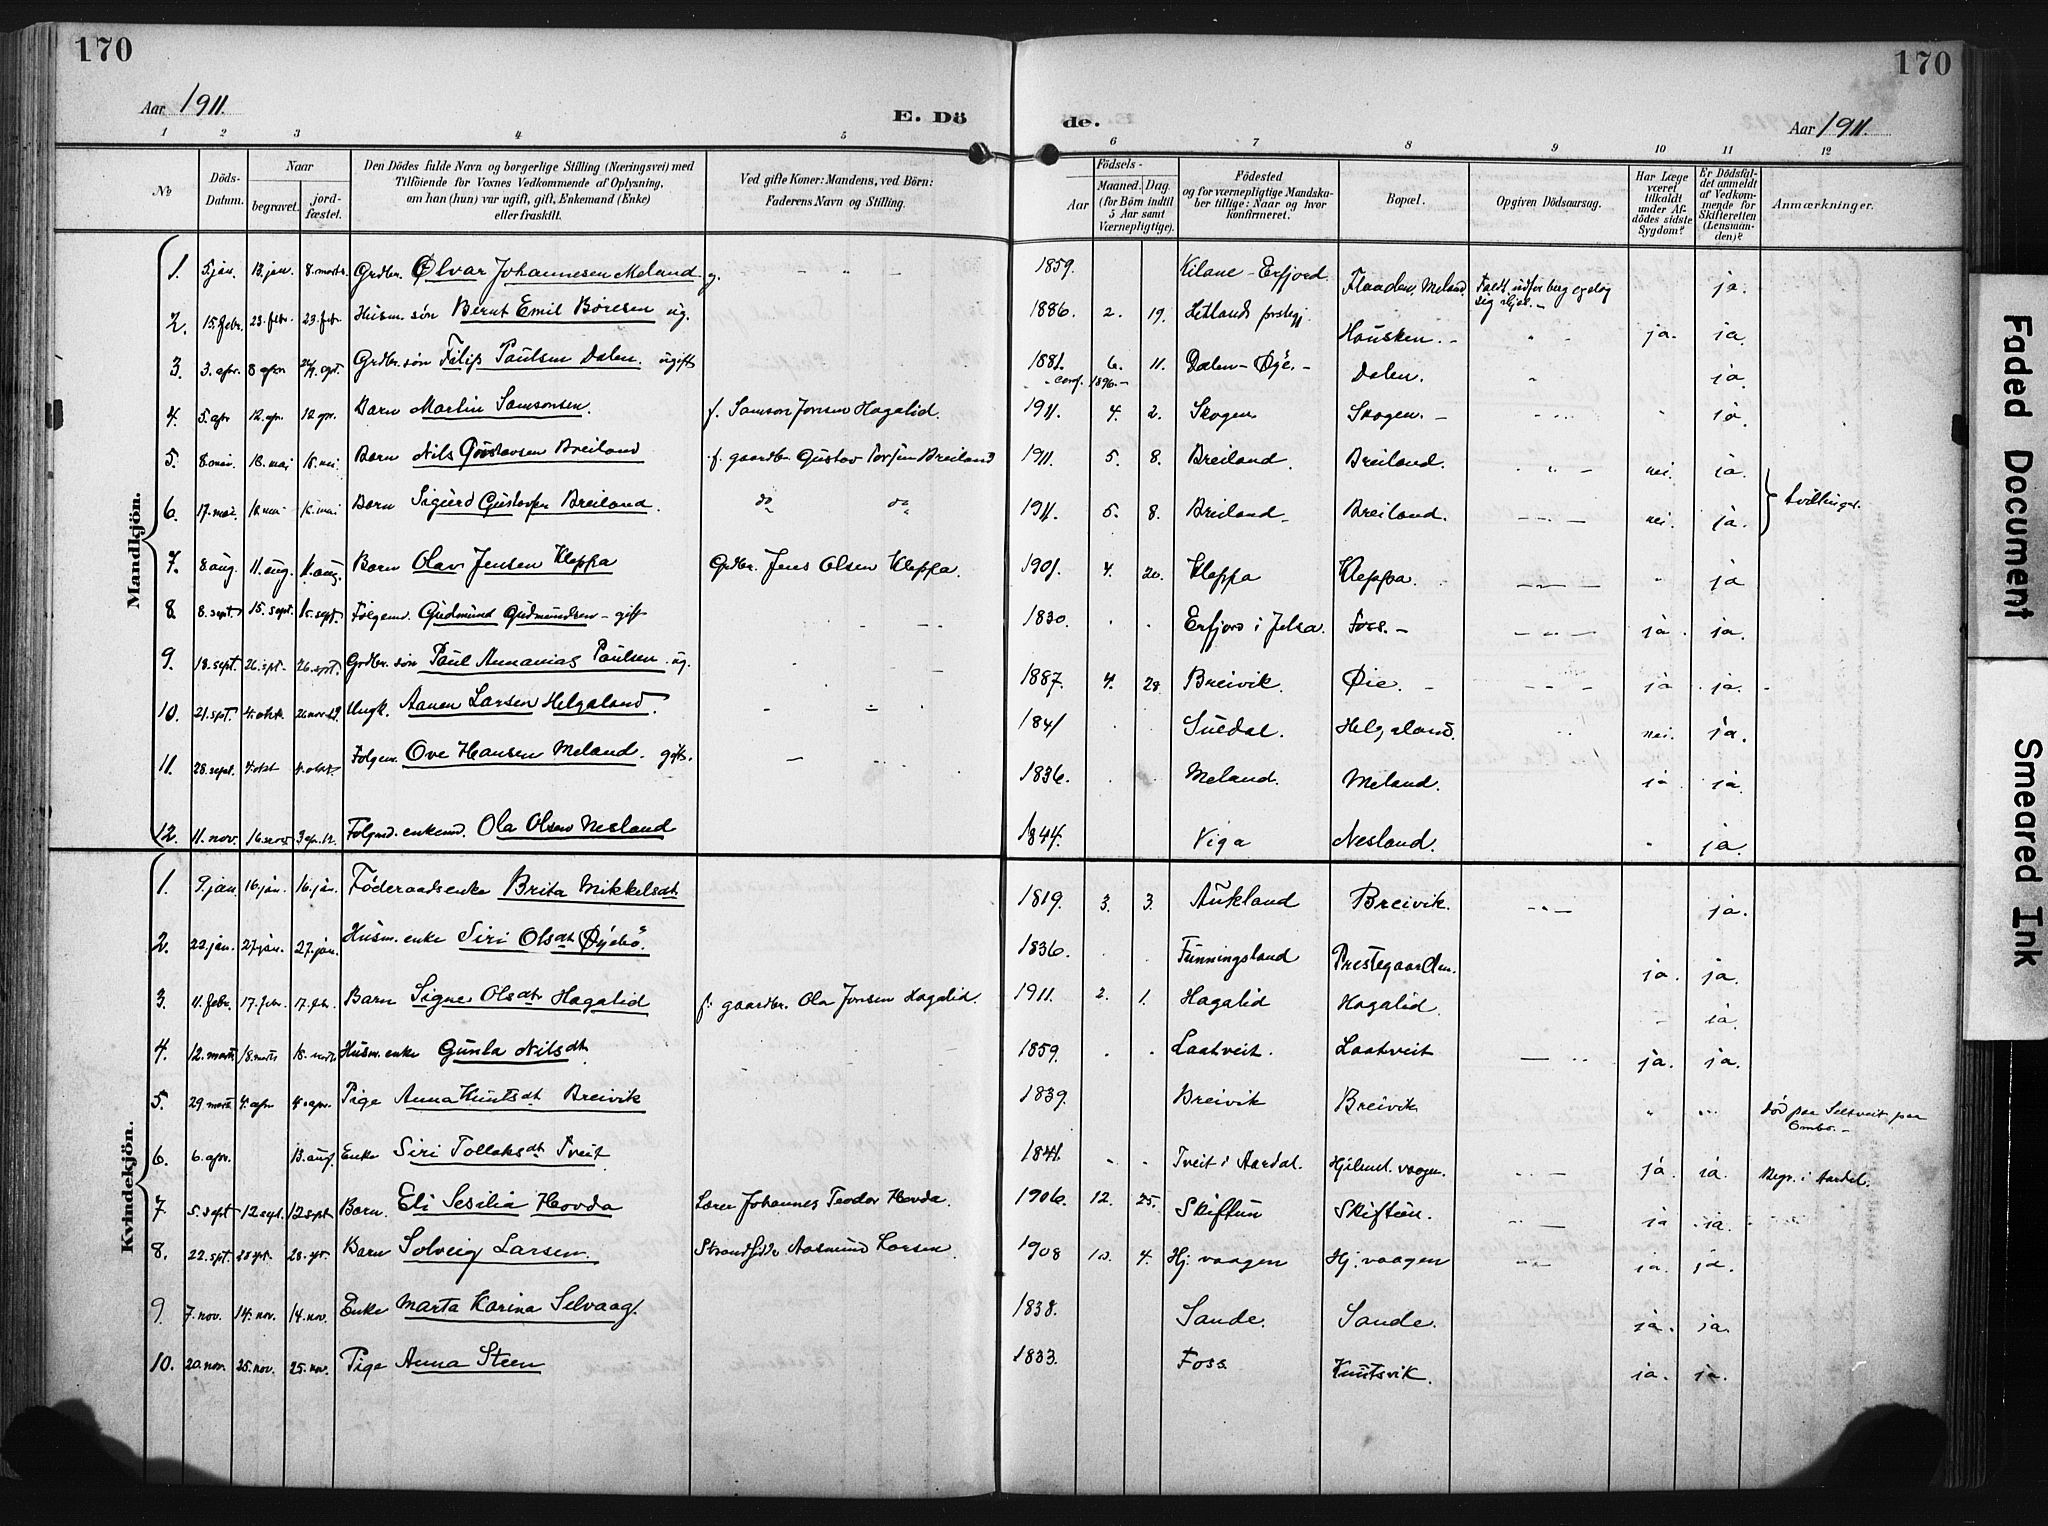 170
170
Aar 1911.
E. Dö
de.
Aar 1911.
1 2 3 4 5 6 7 8 9 10 11 12
No
Döds-Datum.
Naar
begravet.
jord-fæstet.
Den Dödes fulde Navn og borgerlige Stilling (Næringsvei) med
Tilföiende for Voxnes Vedkommende af Oplysning,
om han (hun) var ugift, gift, Enkemand (Enke)
eller fraskilt.
Ved gifte Koner: Mandens, ved Börn:
Faderens Navn og Stilling.
Födsels-
Aar
Maaned. Dag.
(for Börn indtil
5 Aar samt
Værnepligtige).
Födested
og for værnepligtige Mandska-
ber tillige: Naar og hvor
konfirmeret.
Bopæl.
Opgiven Dödsaarsag.
Har Læge
været
tilkaldt
under Af-
dödes sidste
Sygdom?
Er Dödsfal-
det anmeldt
af Vedkom-
mende for
Skifteretten
(Lensman-
den)?
Anmærkninger.
Mandkjön.
1. 5 jan. 13. jan. 8. marts Grdbr. Ølvar Johannesen Meland g. 1859. Kilane - Erfjord. Flaaden, Meland. Faldt udfor berg og slog sig ihjel. ja.
2. 15. febr. 23. febr. 23. febr Husm. søn Bernt Emil Børesen ug. 1886. 2. 19. Hetlands prstegj. Hausken. ja. ja.
3. 3. apr. 8 apr Grdbr. søn Filip Paulsen Dalen. ugift 1881. 6. 11. Dalen - Øye. Dalen. ja.
conf. 1896.
4. 5. apr 12. apr. 12 apr. Barn Martin Samsonsen. f. Samson Jonsen Hagalid. 1911. 4. 2. Skogen Skogen. ja.
5. 8. mai. 18. mai 18. mai. Barn Nils Gustavsen Breiland f. gaardbr. Gustav Torsen Breiland 1911. 5. 8. Breiland. Breiland. nei. ja.
6. 17. mai. 18. mai 18. mai Barn Sigurd Gustavsen Breiland. do do 1911. 5. 8. Breiland Breiland. nei. ja. } tvillinger.
7. 8. aug. 11. aug. 11. aug. Barn Olav Jensen Kleppa Grdbr. Jens Olsen Kleppa. 1901. 4. 20. Kleppa Kleppa. ja
8. 8. sept. 15. sept. 15. sept. Følgemd. Gudmund Gudmundsen - gift 1830. Erfjord i Jelsa. Foss. ja. ja.
9. 18. sept. 26. spt. 26. spt. Grdbr. søn Paul Annanias Paulsen. ug. 1887. 4. 28. Breivik. Øie. ja ja.
10. 21. spt. 4. okt. 26 nov. Ungk. Aanen Larsen Helgaland. 1841 Suedal. Helgaland. nei. ja.
11. 28. sept. 4. okt 4. okt. Følgem. Ove Hansen Meland. gift. 1836. Meland. Meland. ja ja.
12. 11. nov. 16. nov. 3 apr. 12. Følgmd. enkemd. Ola Olsen Nesland 1844. Viga Nesland. ja.
Kvindekjön.
1. 9. jan. 16. jan. 16. jan. Føderaadsenke Brita Mikkelsdt 1819. 3. 3. Aukland Breivik. ja.
2. 22. jan. 27. jan. 27. jan. Husm. enke Siri Olsdt Øyebø. 1836. Funningsland Prestegaarden. ja. ja.
3. 11. febr. 17. febr 17. febr. Barn Signe Olsdt Hagalid f. gaardbr. Ola Jonsen Hagalid. 1911. 2. 1. Hagalid Hagalid. ja.
4. 12. marts 18. marts 18. marts Husm. enke Gunla Nilsdt. 1859. Laatveit. Laatveit ja. ja.
5. 29. marts 4. apr 4. apr. Pige Anna Knutsdt Breivik 1839. Breivik Breivik død paa Seltveit paa Ombo.
6. 6. apr. 13. aug. Enke Siri Tollaksdt Tveit 1841. Tveit i Aardal. ja. ja. Begr. i Aardal.
7. 5. sept 12 sept. 12 spt. Barn. Eli Sesilia Hovda Lærer Johannes Teodor Hovda. 1906. 12. 25. Skiftun Skiftun. ja ja.
8. 22. spt. 28 spt. 28. spt. Barn Solveig Larsen. Strandsidder Aasmund Larsen. 1908 10. 4. Hj. vaagen Hj. vaagen ja. ja.
9. 7. nov. 14. nov. 14 nov. Enke Marta Karina Selvaag. 1838. Sande. Sande. ja. ja.
10. 20. nov. 25. nov. 25. nov. Pige Anna Steen 1833. Foss Knutsvik. ja. ja.
Faded Document
Smeared Ink